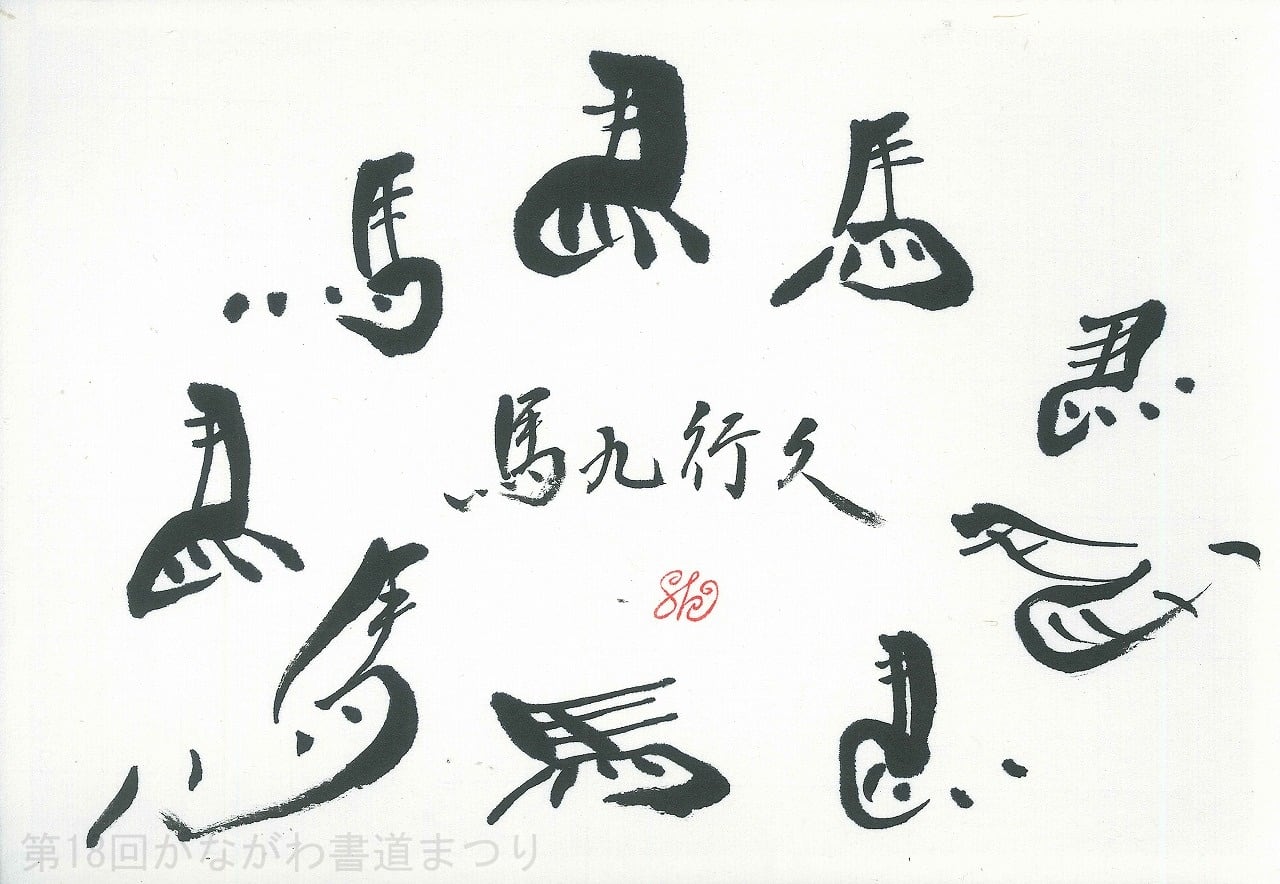 馬
馬
馬
馬
馬
馬九行久
馬
馬
馬
馬
第18回かながわ書道まつり